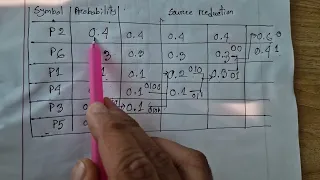 Symbol Probability Source Reduction
P2 0.4 0.4 0.4 0.4 0.6 0
P6 3 0.3 0.3 0.3 00 0.4 1
P1 1 0.1 0.2 010 0.3 01
P4 0.1 0100 0.1 011
P3 0.1
P5